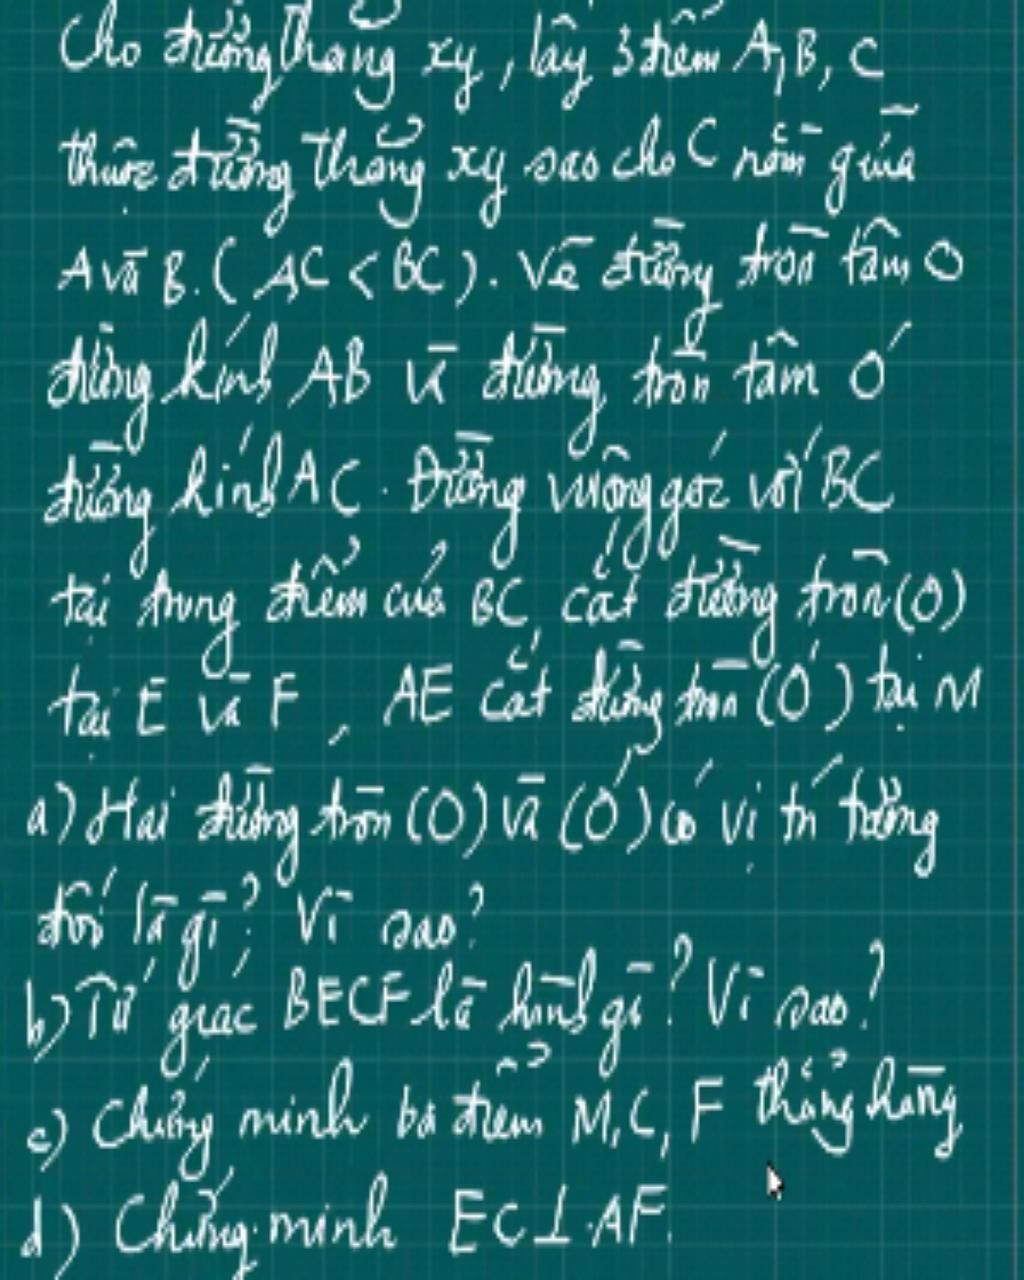 Cho đường thẳng xy, lấy 3 điểm A, B, C
thuộc đường thẳng xy sao cho C nằm giữa
A và B. (AC < BC). Vẽ đường tròn tâm O
đường kính AB và đường tròn tâm O'
đường kính AC. Đường vuông góc với BC
tại trung điểm của BC cắt đường tròn (O)
tại E và F, AE cắt đường tròn (O') tại M
a) Hai đường tròn (O) và (O') có vị trí tương
đối là gì? Vì sao?
b) Tứ giác BECF là hình gì? Vì sao?
c) Chứng minh ba điểm M, C, F thẳng hàng
d) Chứng minh EC ⊥ AF.